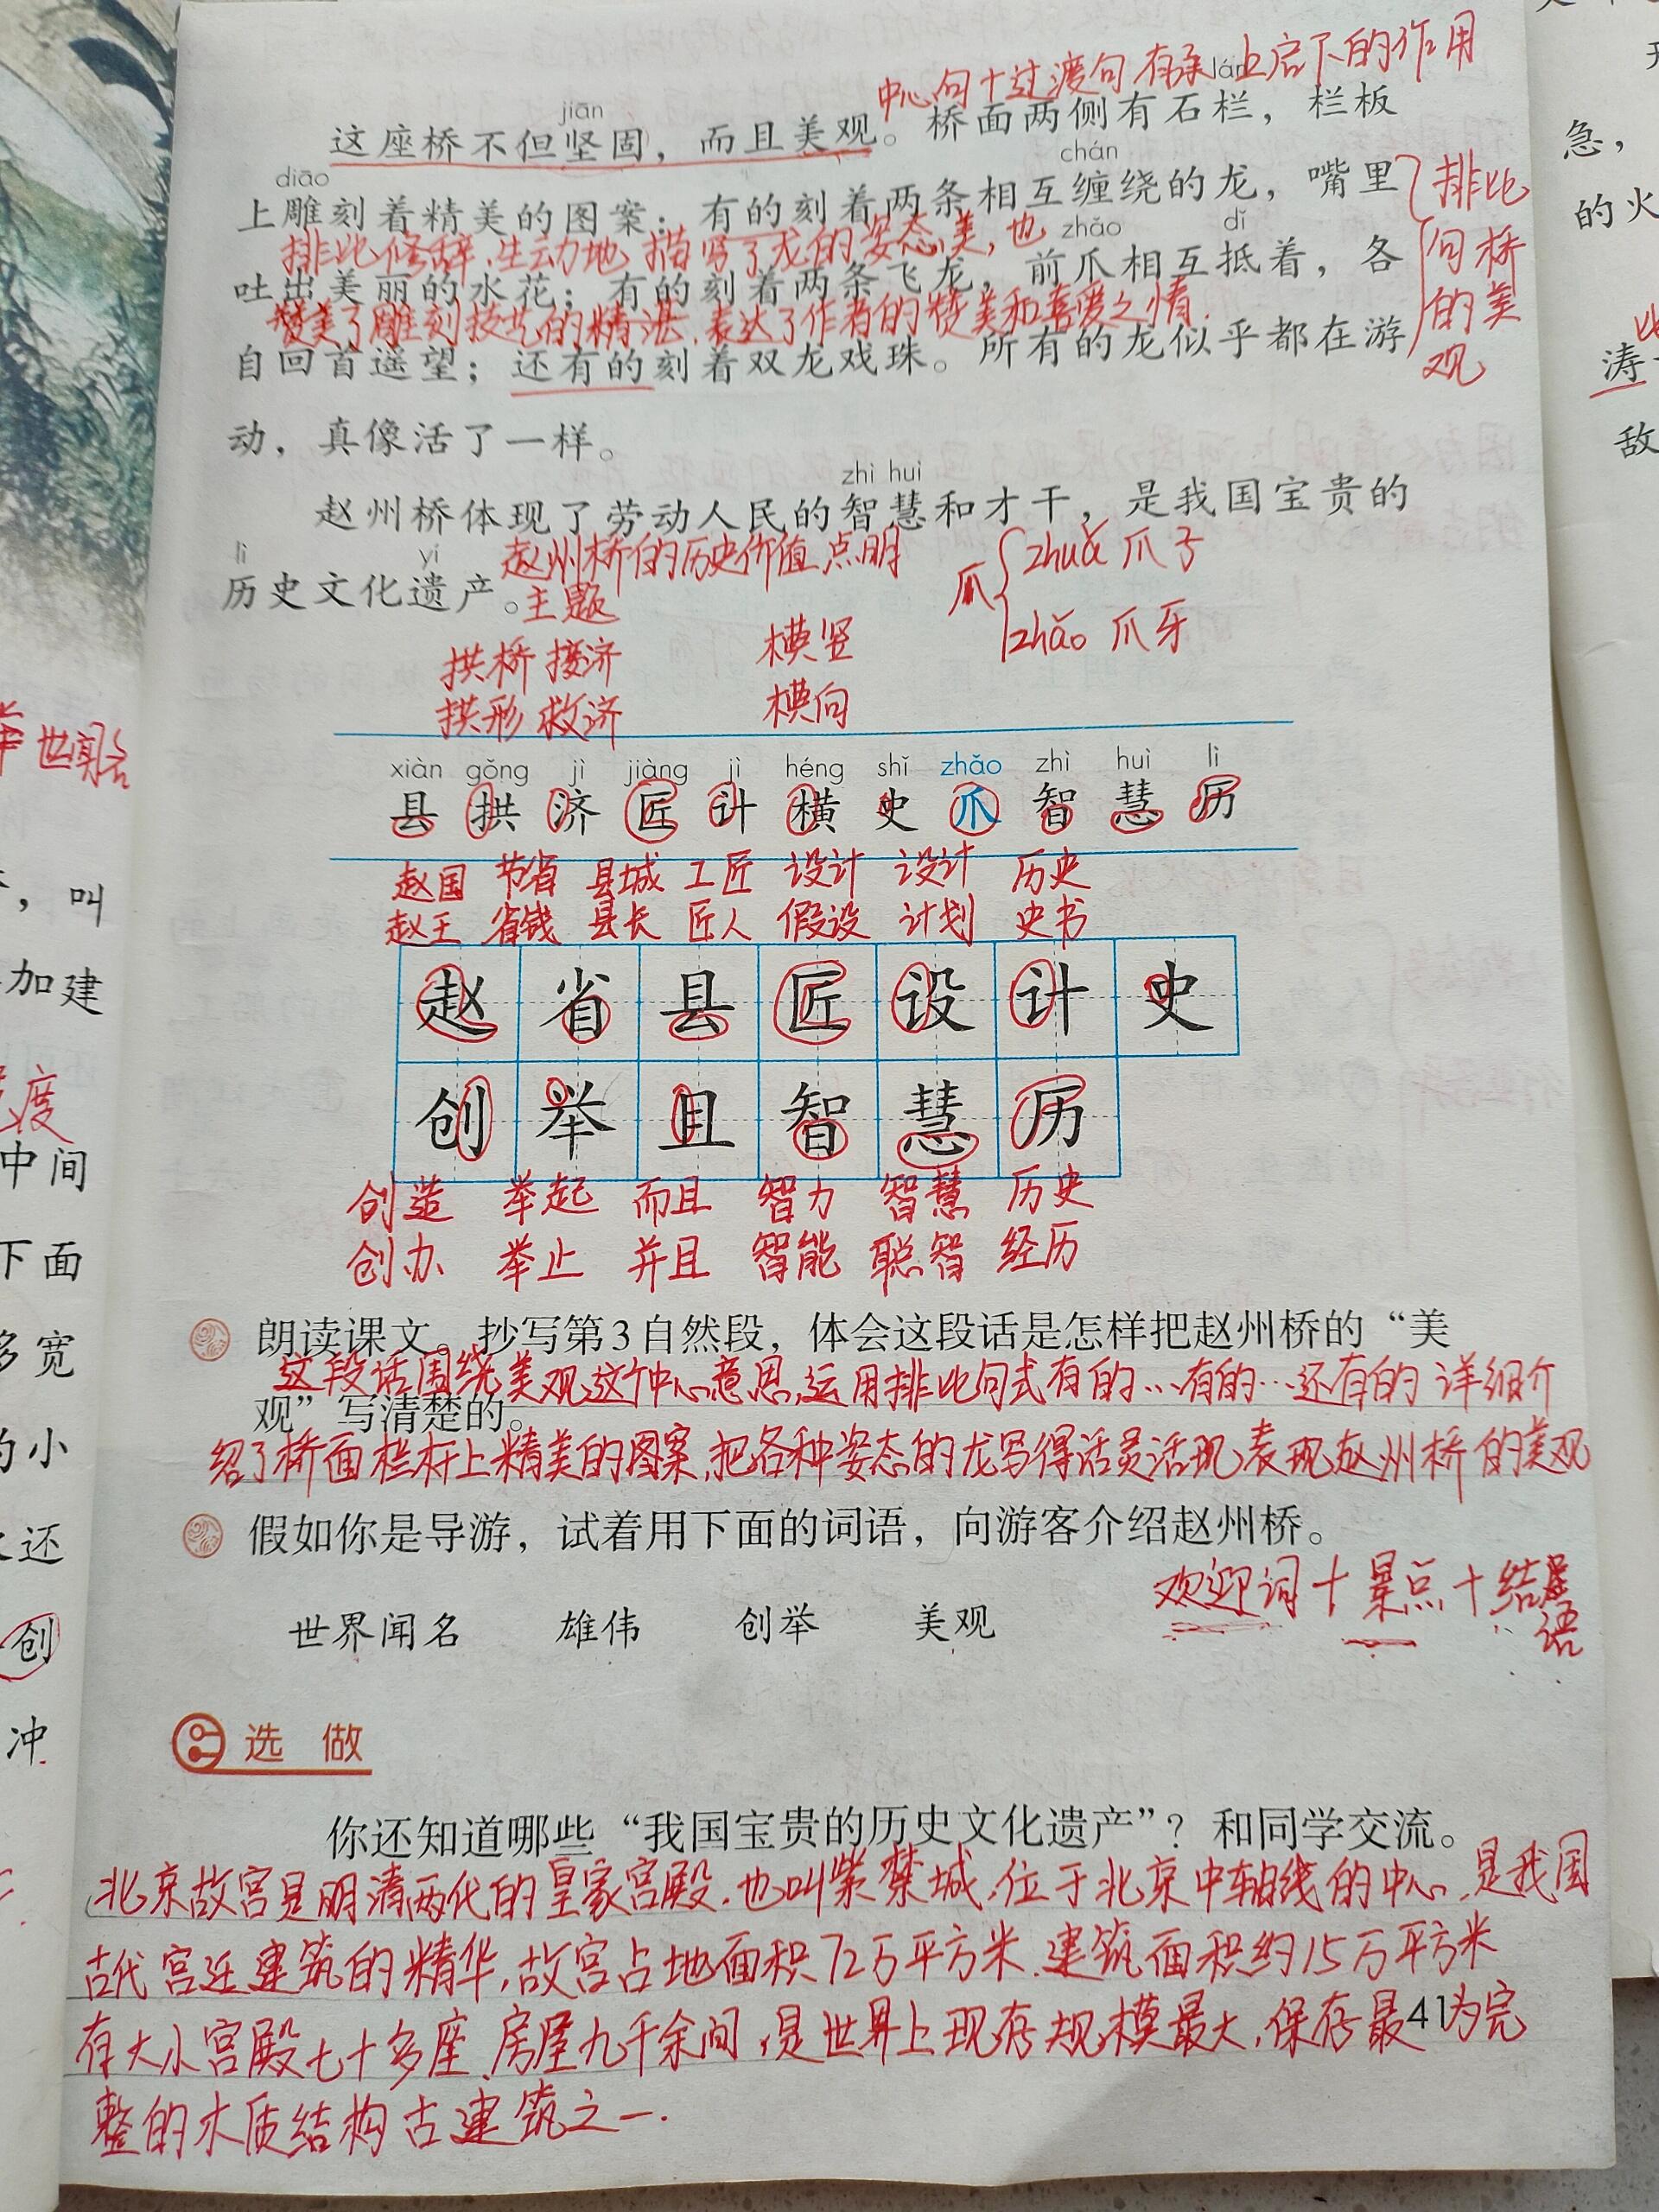 中心句+过渡句 有承上启下的作用
jiān
lán
这座桥不但坚固，而且美观。桥面两侧有石栏，栏板
diāo
chán
上雕刻着精美的图案：有的刻着两条相互缠绕的龙，嘴里
排比
句桥
的美
观
排比修辞，生动地描写了龙的姿态美，也
zhǎo
dǐ
吐出美丽的水花；有的刻着两条飞龙，前爪相互抵着，各
赞美了雕刻技艺的精湛，表达了作者的赞美和喜爱之情.
自回首遥望；还有的刻着双龙戏珠。所有的龙似乎都在游
动，真像活了一样。
zhì huì
赵州桥体现了劳动人民的智慧和才干，是我国宝贵的
lì
yí
历史文化遗产。
赵州桥的历史价值 点明
主题
爪
zhuǎ 爪子
zhǎo 爪牙
拱桥 接济 横竖
拱形 救济 横向
xiàn gǒng jì jiàng jì héng shǐ zhǎo zhì huì lì
县 拱 济 匠 计 横 史 爪 智 慧 历
赵国 节省 县城 工匠 设计 设计 历史
赵王 省钱 县长 匠人 假设 计划 史书
赵 省 县 匠 设 计 史
创 举 且 智 慧 历
创造 举起 而且 智力 智慧 历史
创办 举止 并且 智能 聪智 经历
朗读课文。抄写第3自然段，体会这段话是怎样把赵州桥的“美
这段话围绕美观这个中心意思，运用排比句式有的…有的…还有的 详细介
观”写清楚的。
绍了桥面栏杆上精美的图案，把各种姿态的龙写得活灵活现，表现赵州桥的美观
假如你是导游，试着用下面的词语，向游客介绍赵州桥。
欢迎词+景点+结尾
语
世界闻名 雄伟 创举 美观
选 做
你还知道哪些“我国宝贵的历史文化遗产”？和同学交流。
北京故宫是明清两代的皇家宫殿，也叫紫禁城，位于北京中轴线的中心，是我国
古代宫廷建筑的精华，故宫占地面积72万平方米，建筑面积约15万平方米
有大小宫殿七十多座、房屋九千余间，是世界上现存规模最大，保存最为完
41
整的木质结构古建筑之一.
世闻名
，叫
加建
度
中间
下面
多宽
的小
还
创
冲
急，
的火
涛
敌